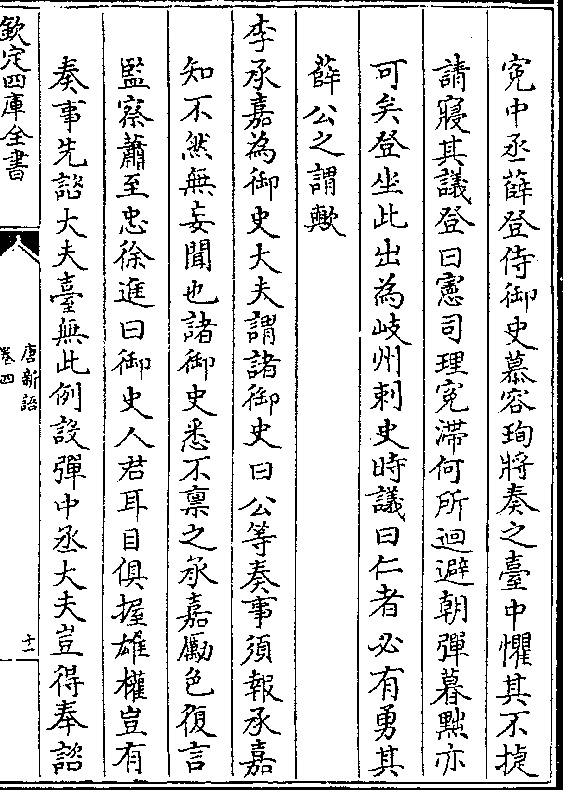 寃中丞薛登侍御史慕容珣將奏之臺中懼其不捷
請寢其議登曰憲司理寃滯何所迴避朝彈暮黜亦
可矣登坐此出為岐州刺史時議曰仁者必有勇其
薛公之謂歟
李承嘉為御史大夫謂諸御史曰公等奏事須報承嘉
知不然無妄聞也諸御史悉不禀之承嘉厲色復言
監察蕭至忠徐進曰御史人君耳目俱握雄權豈有
奏事先諮大夫臺無此例設彈中丞大夫豈得奉諮
欽定四庫全書
唐新語
卷四
十一